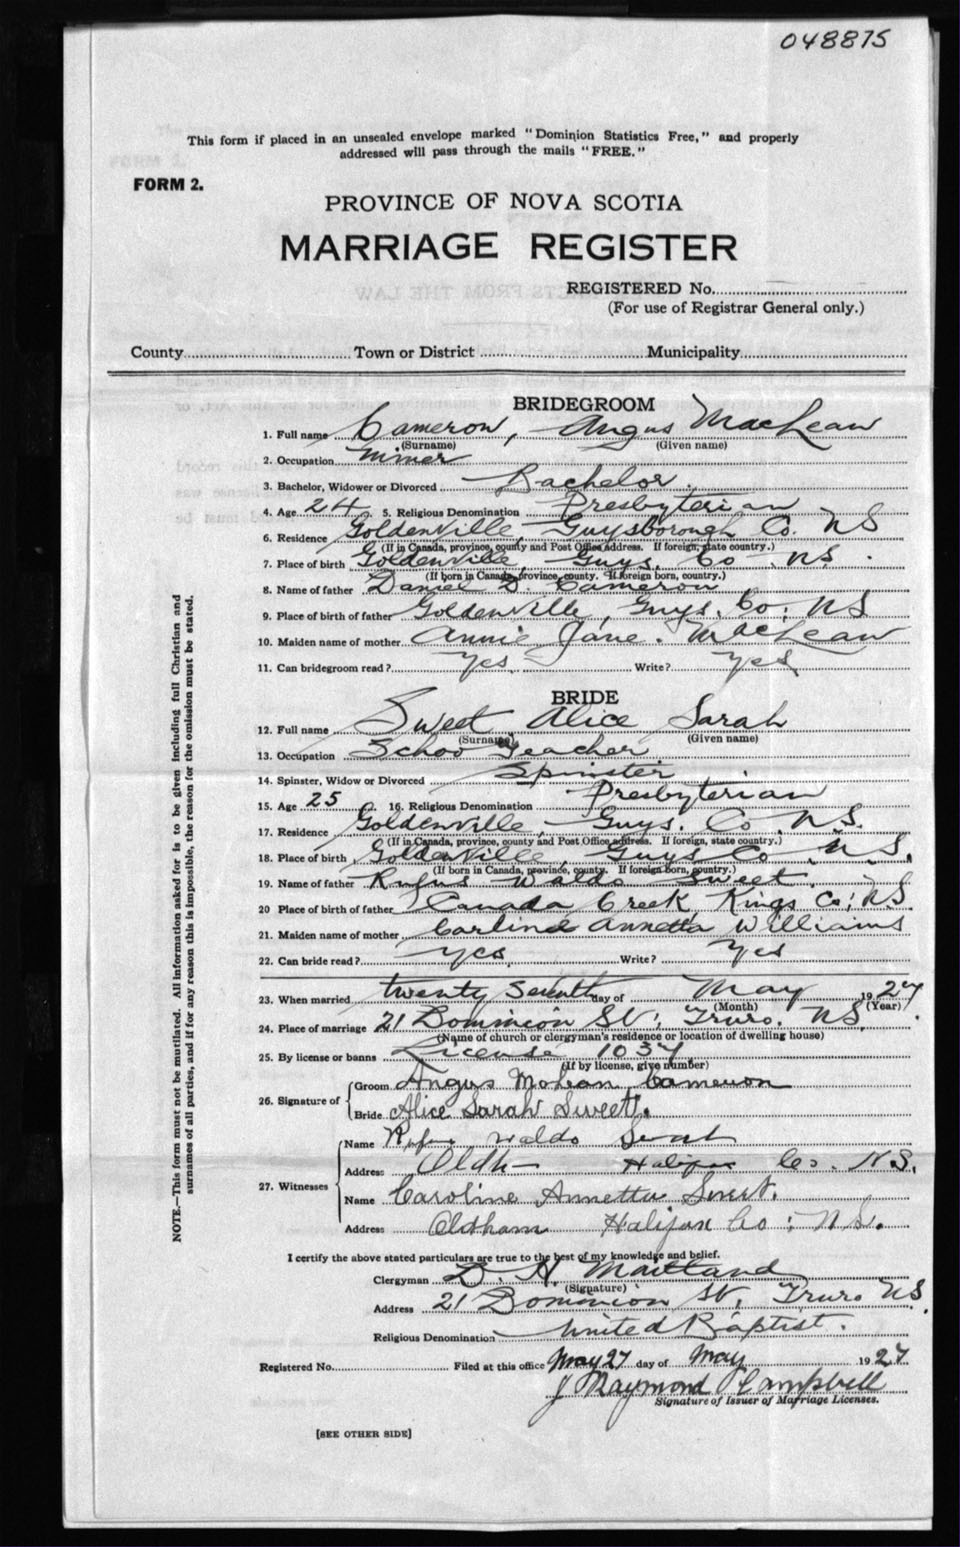 048875
This form if placed in an unsealed envelope marked "Dominion Statistics Free," and properly
addressed will pass through the mails "FREE."
FORM 2.
PROVINCE OF NOVA SCOTIA
MARRIAGE REGISTER
REGISTERED No.
(For use of Registrar General only.)
County Town or District Municipality
BRIDEGROOM
1. Full name Cameron, Angus MacLean
(Surname) (Given name)
2. Occupation Miner
3. Bachelor, Widower or Divorced Bachelor
4. Age 24 5. Religious Denomination Presbyterian
6. Residence Goldenville, Guysborough Co. NS
(If in Canada, province, county and Post Office address. If foreign, state country.)
7. Place of birth Goldenville, Guys. Co. N.S.
(If born in Canada, province, county. If foreign born, country.)
8. Name of father Daniel D. Cameron
9. Place of birth of father Goldenville, Guys. Co; NS
10. Maiden name of mother Annie Jane. MacLean
11. Can bridegroom read? Yes Write? Yes
BRIDE
12. Full name Sweet Alice Sarah
(Surname) (Given name)
13. Occupation School Teacher
14. Spinster, Widow or Divorced Spinster
15. Age 25 16. Religious Denomination Presbyterian
17. Residence Goldenville, Guys. Co. N.S.
(If in Canada, province, county and Post Office address. If foreign, state country.)
18. Place of birth Goldenville, Guys Co N.S.
(If born in Canada, province, county. If foreign born, country.)
19. Name of father Rufus Waldo Sweet
20 Place of birth of father Canada Creek Kings Co; N.S
21. Maiden name of mother Carline Annetta Williams
22. Can bride read? Yes Write? Yes
23. When married twenty seventh day of May 1927
(Month) (Year)
24. Place of marriage 21 Dominion St; Truro. N.S.
(Name of church or clergyman's residence or location of dwelling house)
25. By license or banns License 1037
(If by license, give number)
26. Signature of Groom Angus Mclean Cameron
Bride Alice Sarah Sweet.
27. Witnesses Name Rufus Waldo Sweet
Address Halifax Co. N.S.
Name Caroline Annetta Sweet.
Address Oldham Halifax Co; N.S.
I certify the above stated particulars are true to the best of my knowledge and belief.
Clergyman D. H. Maitland
(Signature)
Address 21 Dominion St, Truro N.S.
Religious Denomination United Baptist.
Registered No. Filed at this office May 27 day of May 1927
J Raymond Campbell
Signature of Issuer of Marriage Licenses.
[SEE OTHER SIDE]
NOTE.—This form must not be mutilated. All information asked for is to be given including full Christian and
surnames of all parties, and if for any reason this is impossible, the reason for the omission must be stated.